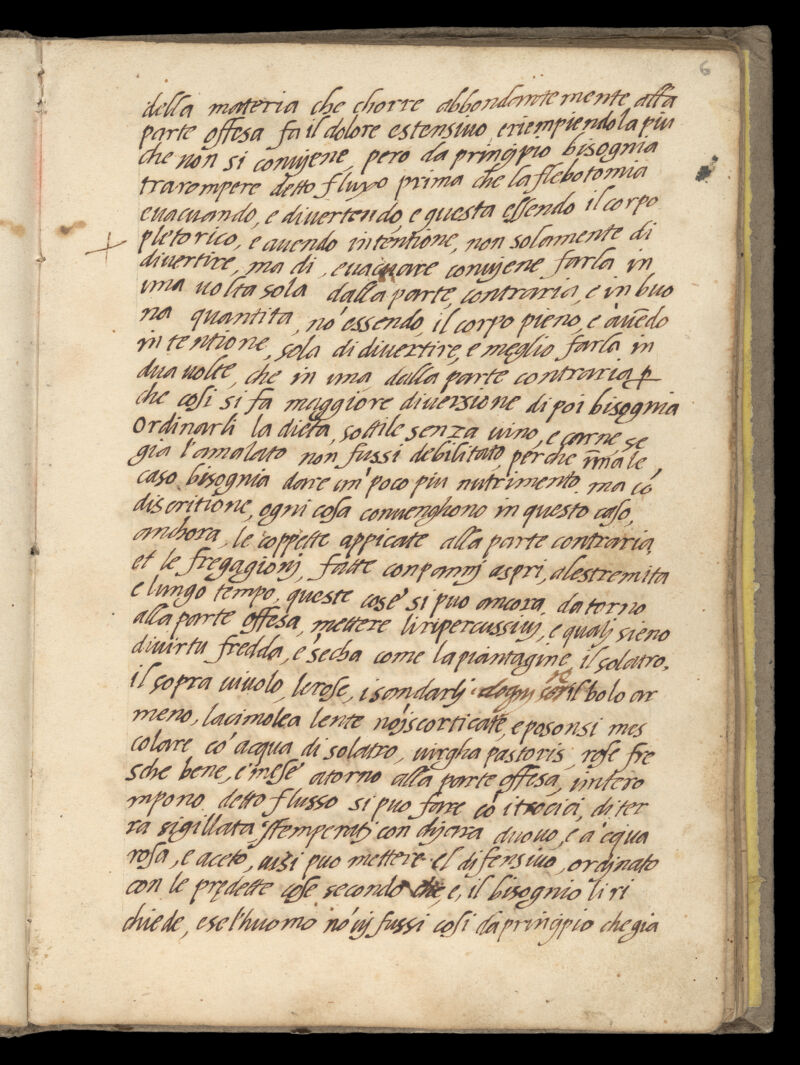 6
della materia che chorre abbondantemente alla
parte offesa fa il dolore estensiuo eriempiendola piu
che non si conujene, pero da principio bisognia
trarompere detto fluxo prima che la flebotomia
euacuando, e diuertendo e questa essendo il corpo
pletorico, e auendo intentione, non solamente di
diuertire, ma di, euacuare conujene farla in
una uolta sola dalla parte contraria, e in buo
na quantita, nō essendo il corpo pieno e auēdo
intentione, sola di diuertire, e meglio farla in
dua uolte, che in una, dalla parte contraria, ꝑ
che cosi si fa maggiore diuersione di poi bisognia
ordinarli la dieta, sottile senza uino, e carne, se
gia l'amalato non fussi debilitato, perche
caso bisognia dare un' poco piu nutrimento ma cō
discritione, ogni cosa conuenghono in questo caso,
anchora, le coppette appicate alla parte contraria,
et le fregagionj, fatte con pannj aspri, alestremita
e lungo tempo, queste cose si puo ancora, da torno
alla parte offesa, mettere li ripercussiuj, e qualj sieno
diuirtu fredda, e secha come la piantagine, il solatro,
il sopra uiuolo, le rose, i sandarlj il bolo ar
meno, la cimolea lente nō iscorticate, e posonsi mes
colare cō acqua di solatro, uirgha pastoris, rose fre
sche bene, e mese atorno alla parte offesa, intero
mpono, detto flusso si puo fare cō i trocici, di ter
ra sigillata stemperatj con chjara duouo, e acqua
rosa, e aceto, uisi puo mettere el difensiuo, ordinato
con le predette cose secondo che, e, il bisognio li ri
chiede, e se l'huomo nō uj fussi cosi da principio che gia